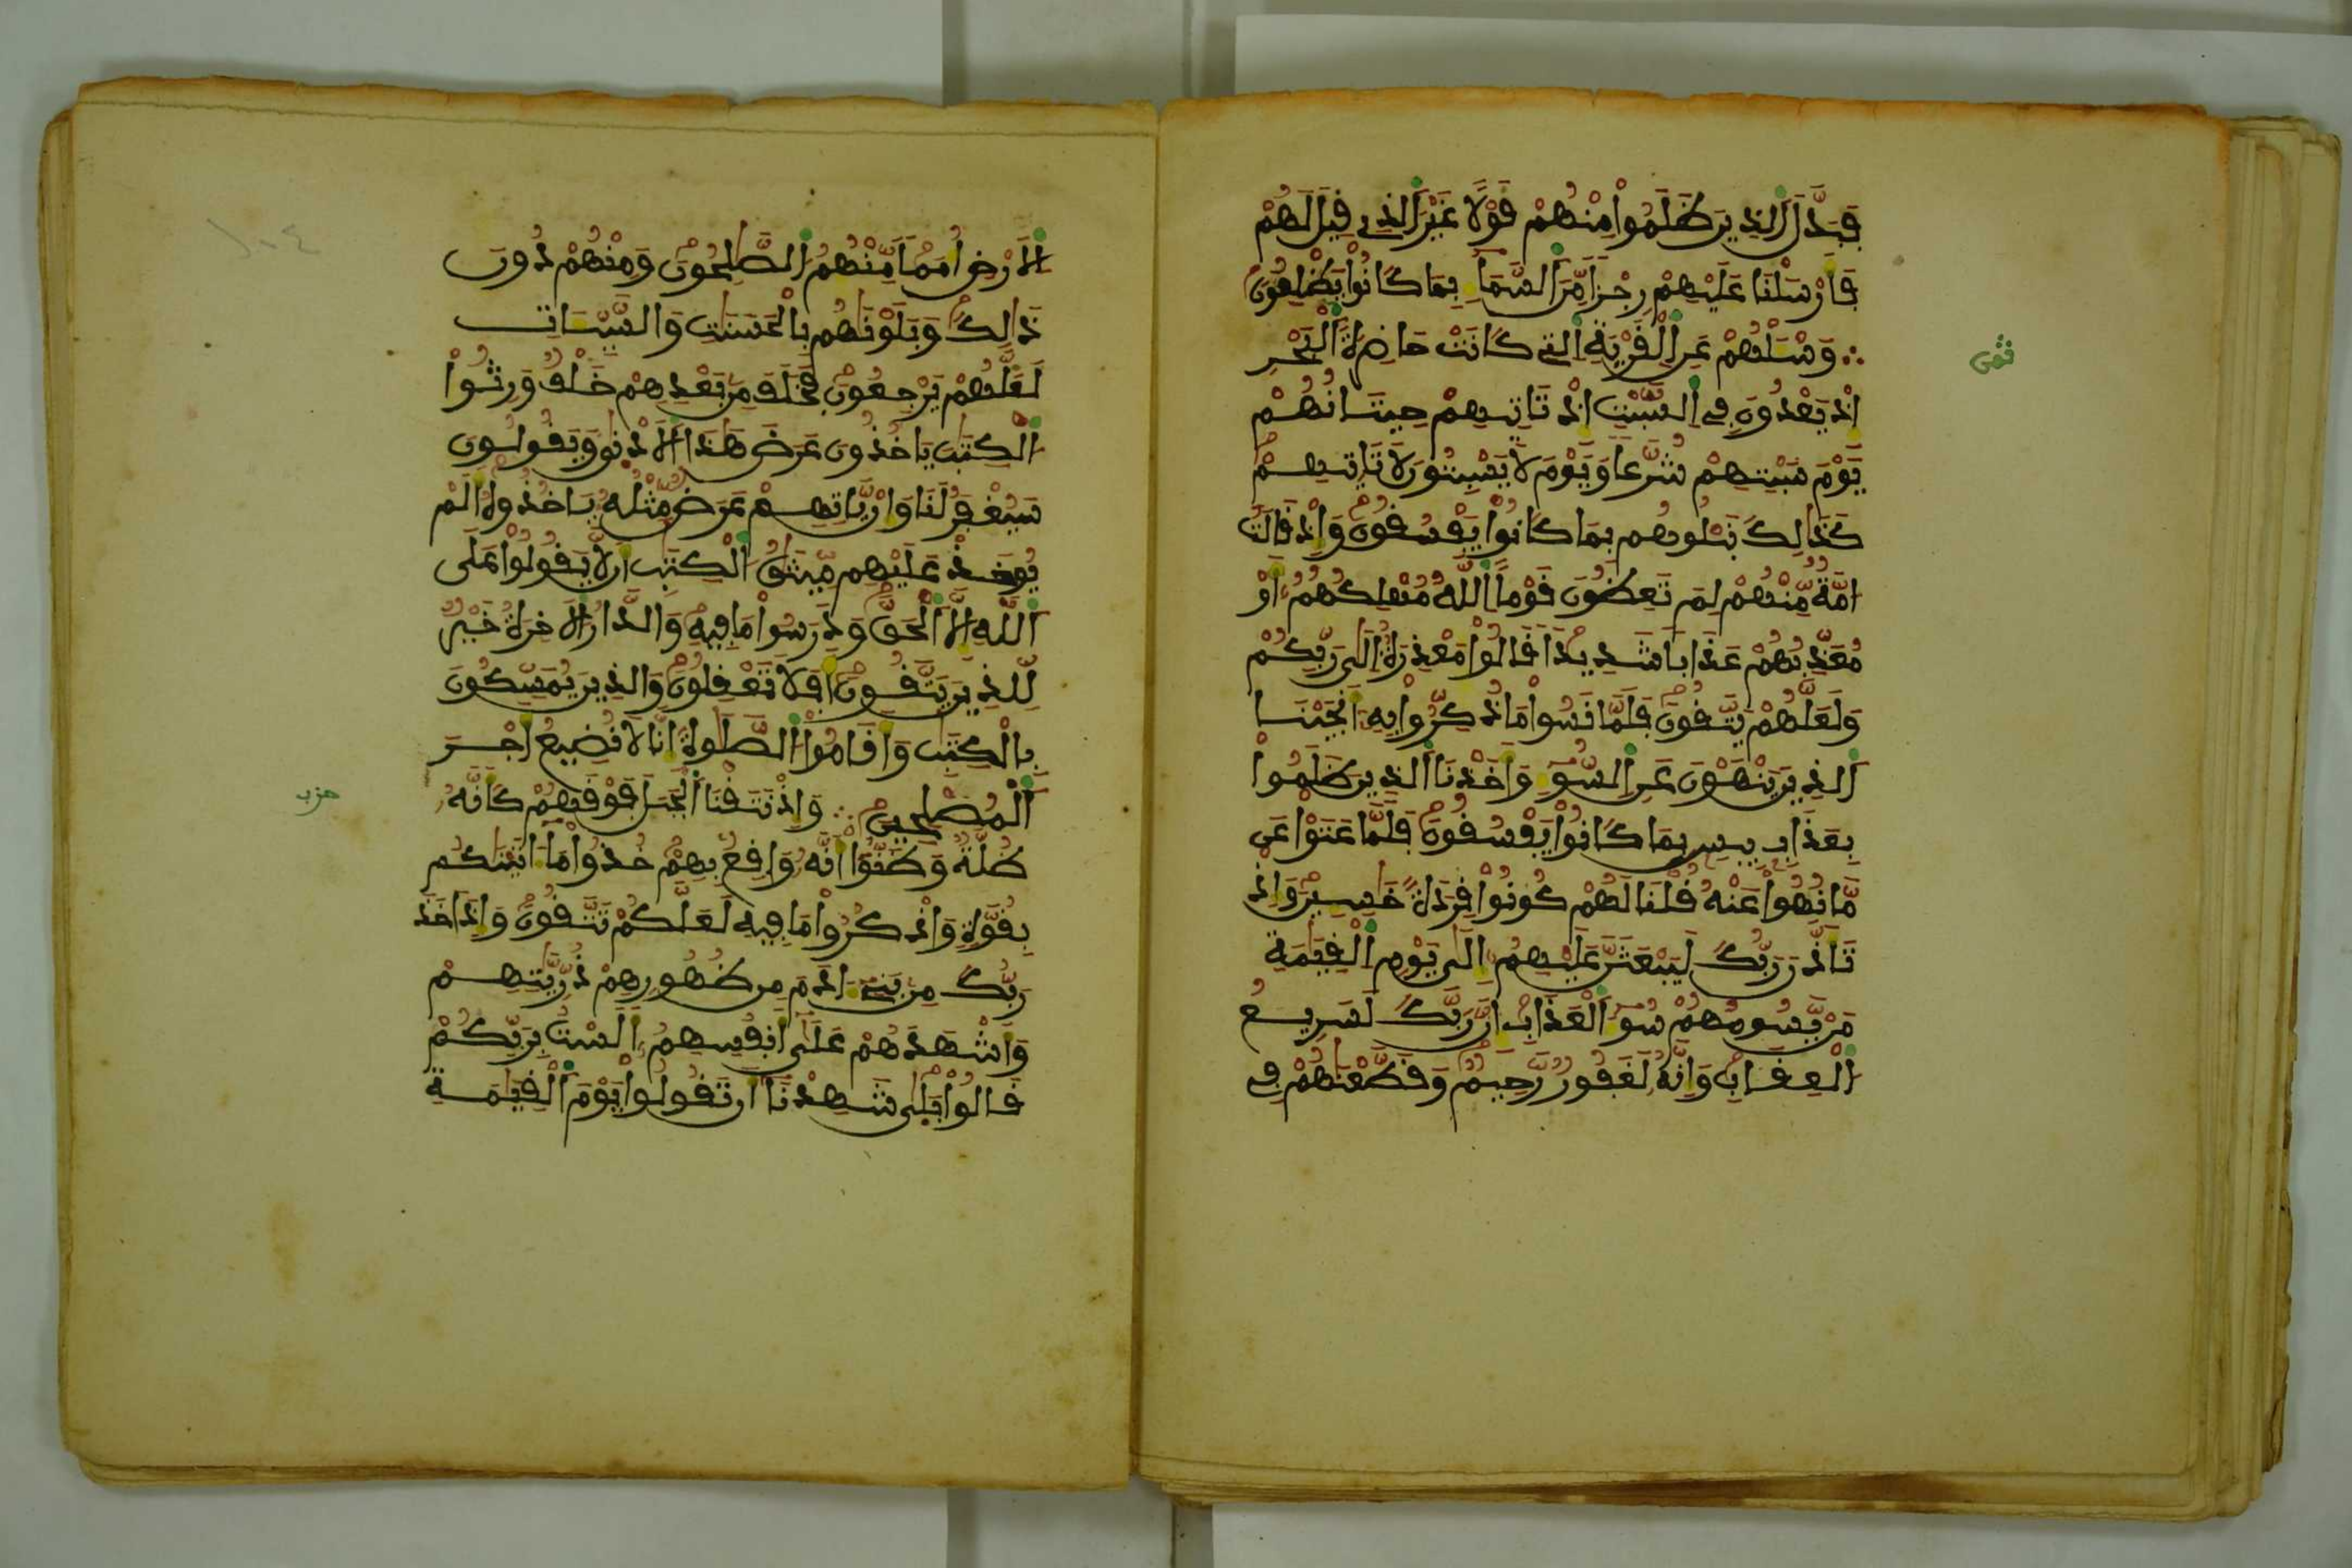 فَبَدَّلَ اَ۬لذِينَ ظَلَمُواْ مِنْهُمْ قَوْلاً غَيْرَ اَ۬لذِے قِيلَ لَهُمْ
فَأَرْسَلْنَا عَلَيْهِمْ رِجْزاً مِّنَ اَ۬لسَّمَآءِ بِمَا كَانُواْ يَظْلِمُونَ
وَسْـَٔلْهُمْ عَنِ اِ۬لْقَرْيَةِ اِ۬لتِے كَانَتْ حَاضِرَةَ اَ۬لْبَحْرِ
ثمن
إِذْ يَعْدُونَ فِے اِ۬لسَّبْتِ إِذْ تَاتِيهِمْ حِيتَانُهُمْ
يَوْمَ سَبْتِهِمْ شُرَّعاً وَيَوْمَ لاَ يَسْبِتُونَ لاَ تَاتِيهِمْ
كَذَالِكَ نَبْلُوهُم بِمَا كَانُواْ يَفْسُقُونَ وَإِذْ قَالَتُ
امَّةٌ مِّنْهُمْ لِمَ تَعِظُونَ قَوْماً اَ۬للَّهُ مُهْلِكُهُمُ أَوْ
مُعَذِّبُهُمْ عَذَاباً شَدِيداً قَالُواْ مَعْذِرَةٌ إِلَىٰ رَبِّكُمْ
وَلَعَلَّهُمْ يَتَّقُونَ فَلَمَّا نَسُواْ مَا ذُكِّرُواْ بِهِۦ أَنجَيْنَا
اَ۬لذِينَ يَنْهَوْنَ عَنِ اِ۬لسُّوٓءِ وَأَخَذْنَا اَ۬لذِينَ ظَلَمُواْ
بِعَذَابٍ بِيسٍ بِمَا كَانُواْ يَفْسُقُونَ فَلَمَّا عَتَوْاْ عَن
مَّا نُهُواْ عَنْهُ قُلْنَا لَهُمْ كُونُواْ قِرَدَةً خَٰسِـِٕينَ وَإِذْ
تَأَذَّنَ رَبُّكَ لَيَبْعَثَنَّ عَلَيْهِمُ إِلَىٰ يَوْمِ اِ۬لْقِيَٰمَةِ
مَنْ يَّسُومُهُمْ سُوٓءَ اَ۬لْعَذَابِ إِنَّ رَبَّكَ لَسَرِيعُ
اُ۬لْعِقَابِ وَإِنَّهُۥ لَغَفُورٌ رَّحِيمٌ وَقَطَّعْنَٰهُمْ فِے
١٠٤
اِ۬لَارْضِ أُمَماً مِّنْهُمُ اُ۬لصَّٰلِحُونَ وَمِنْهُمْ دُونَ
ذَالِكَ وَبَلَوْنَٰهُم بِالْحَسَنَٰتِ وَالسَّيِّـَٔاتِ
لَعَلَّهُمْ يَرْجِعُونَ فَخَلَفَ مِنۢ بَعْدِهِمْ خَلْفٌ وَرِثُواْ
اُ۬لْكِتَٰبَ يَاخُذُونَ عَرَضَ هَٰذَا اَ۬لَادْنَىٰ وَيَقُولُونَ
سَيُغْفَرُ لَنَا وَإِنْ يَّاتِهِمْ عَرَضٌ مِّثْلُهُۥ يَاخُذُوهُ أَلَمْ
يُوخَذْ عَلَيْهِم مِّيثَٰقُ اُ۬لْكِتَٰبِ أَن لاَّ يَقُولُواْ عَلَى
اَ۬للَّهِ إِلاَّ اَ۬لْحَقَّ وَدَرَسُواْ مَا فِيهِ وَالدَّارُ اُ۬لَاخِرَةُ خَيْرٌ
لِّلذِينَ يَتَّقُونَ أَفَلاَ تَعْقِلُونَ وَالذِينَ يُمَسِّكُونَ
بِالْكِتَٰبِ وَأَقَامُواْ اُ۬لصَّلَوٰةَ إِنَّا لاَ نُضِيعُ أَجْرَ
اَ۬لْمُصْلِحِينَ وَإِذْ نَتَقْنَا اَ۬لْجَبَلَ فَوْقَهُمْ كَأَنَّهُۥ
حزب
ظُلَّةٌ وَظَنُّوٓاْ أَنَّهُۥ وَاقِعٌۢ بِهِمْ خُذُواْ مَآ ءَاتَيْنَٰكُم
بِقُوَّةٍ وَاذْكُرُواْ مَا فِيهِ لَعَلَّكُمْ تَتَّقُونَ وَإِذَ اَخَذَ
رَبُّكَ مِنۢ بَنِےٓ ءَادَمَ مِن ظُهُورِهِمْ ذُرِّيَّٰتِهِمْ
وَأَشْهَدَهُمْ عَلَىٰٓ أَنفُسِهِمُۥٓ أَلَسْتُ بِرَبِّكُمْ
قَالُواْ بَلَىٰ شَهِدْنَآ أَن تَقُولُواْ يَوْمَ اَ۬لْقِيَٰمَةِ